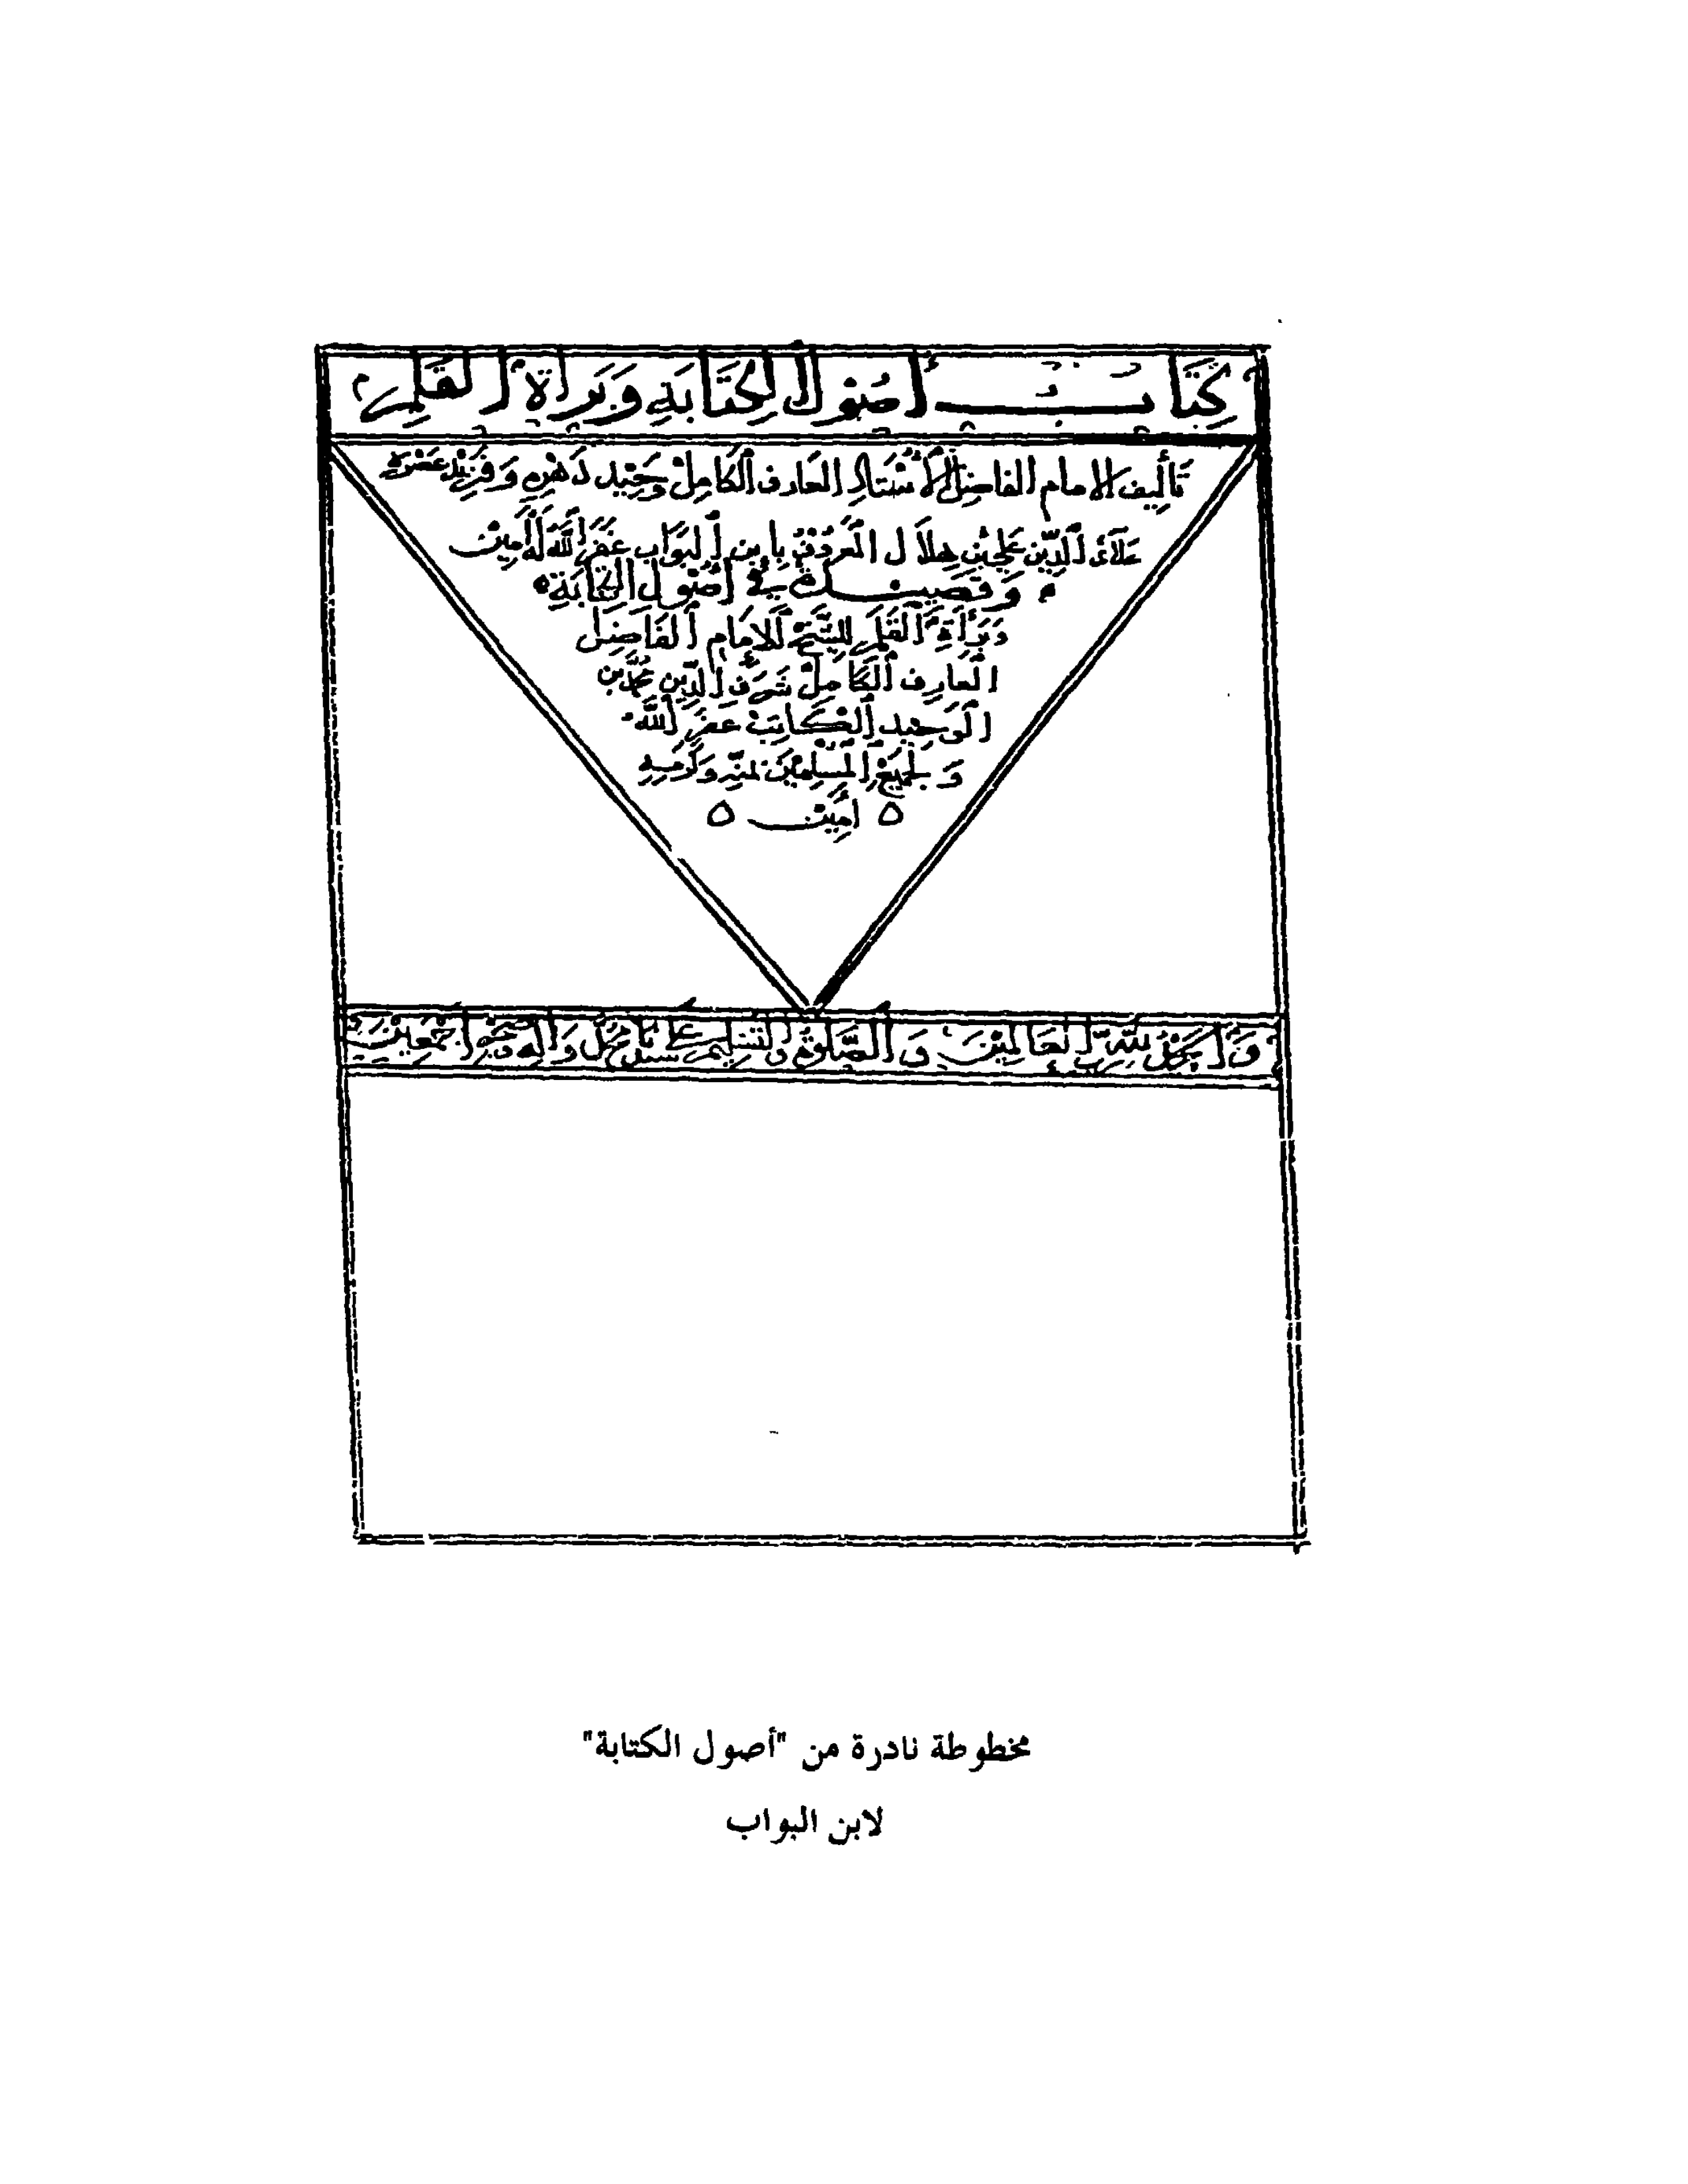 كِتَابُ أُصُول الكِتَابَةِ وَبَرَأةِ القَلَمِ
تَأليف الامام الفاضِل الأُسْتَاد العَارف الكَامِل وَحِيد دَهْرِهِ وَفَرِيْد عَصْرِهِ
عَلاَء الدِّين عَلي بْنِ هِلاَل المَعْرُوْف بِابن البَوَاب غَفَرَ اللّٰه لَهُ آمِين
وَقصِيدة فِي أُصُول الكِتَابَةِ
وَبَرْأَةِ القَلَمِ لِلشَّيْخ الاِمَام الفَاضِل
العَارِف الكَامِل شَرَف الدِّين مُحَمَّد بْن
الوَحِيد الكَاتِب غَفَرَ اللّٰه
وَلِجَمِيْعِ المُسْلِمِيْنَ بِمَنِّهِ وَكَرَمِهِ
أَمِيْن
وَالحَمْدُ للّٰهِ رَبِّ العَالَمِيْنَ وَالصَّلوةُ وَالتَّسْلِيم عَلَى سَيِّدِنَا مُحَمَّد وَآله وَصَحْبِهِ اَجْمَعِيْنَ
مخطوطة نادرة من "أصول الكتابة"
لابن البواب